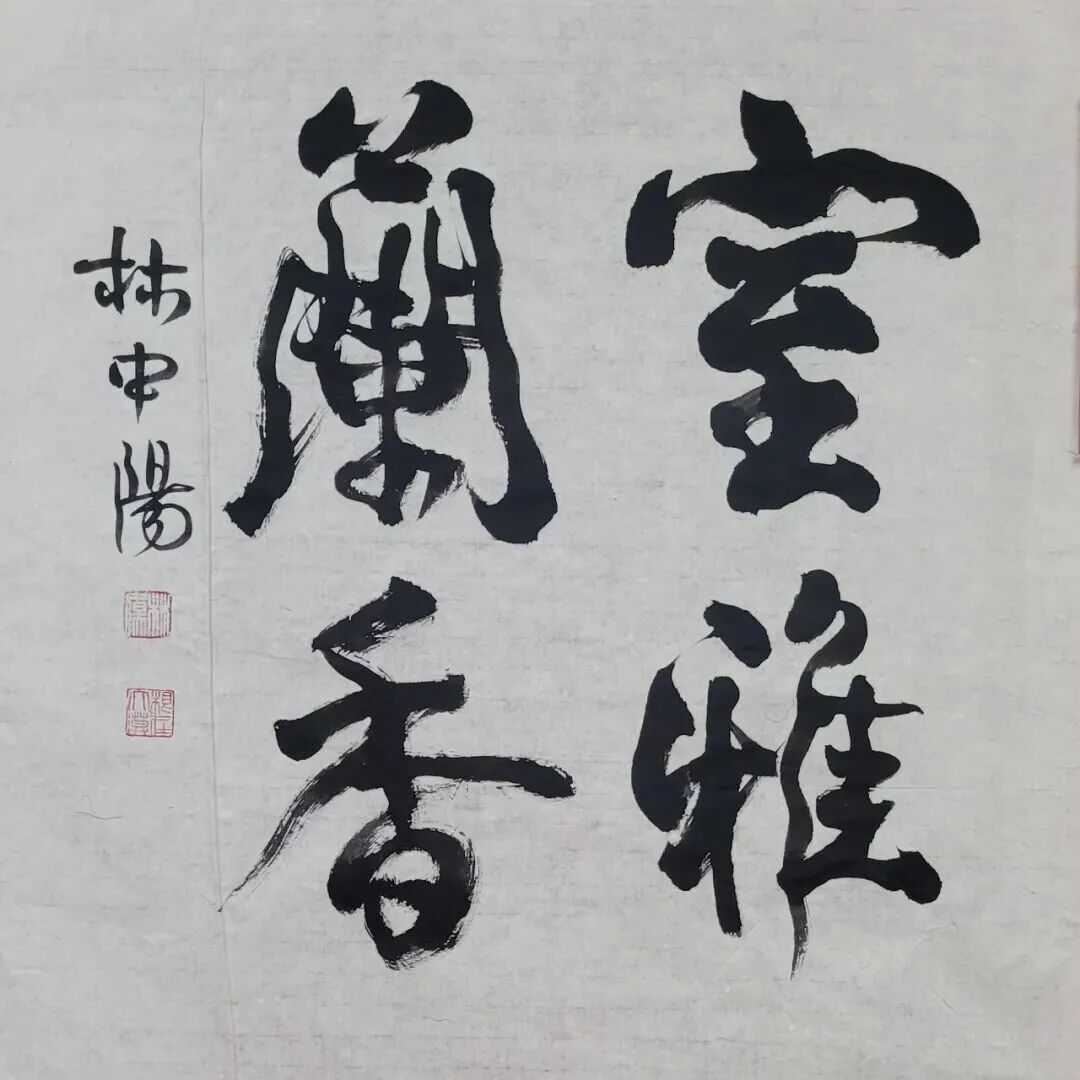 室雅
蘭香
林中陽